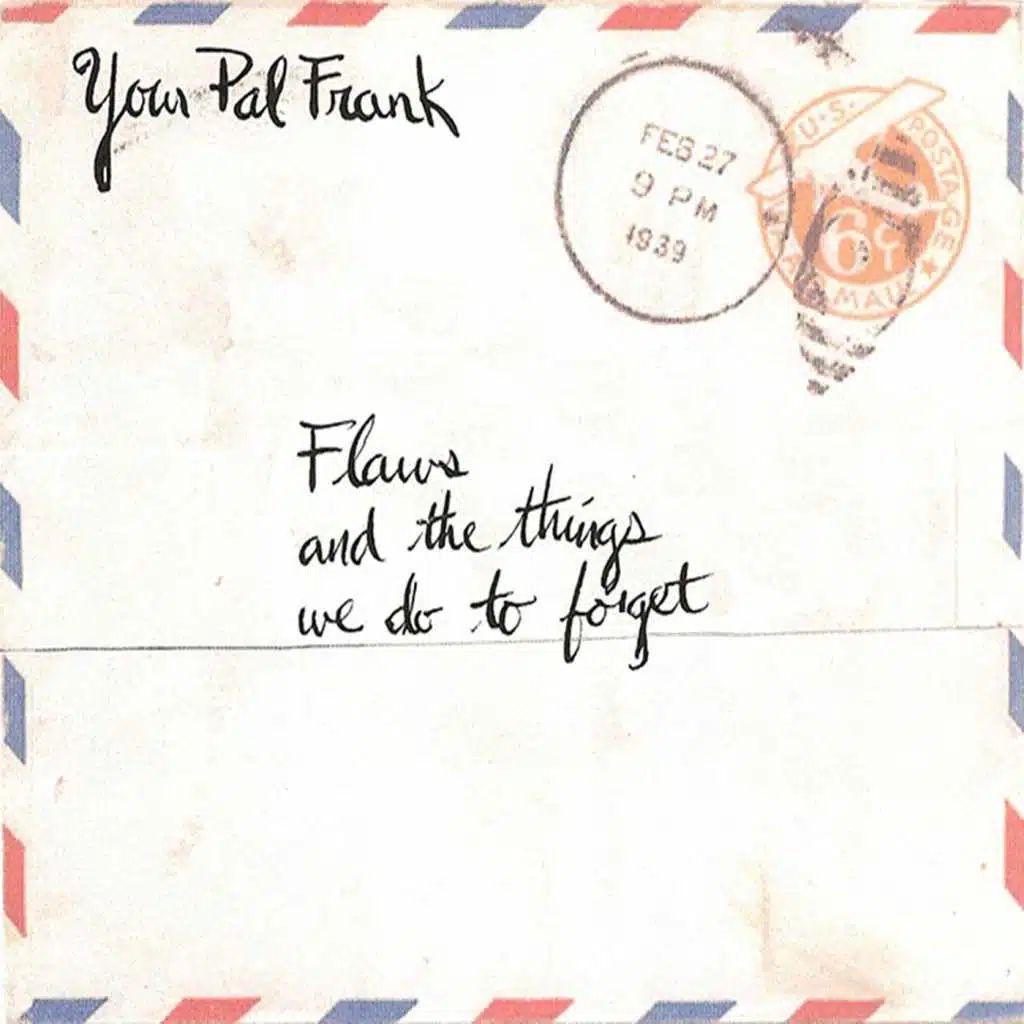 Your Pal Frank
FEB 27
9 PM
1939
U.S. POSTAGE
6 CT
AIR MAIL
Flaws
and the things
we do to forget